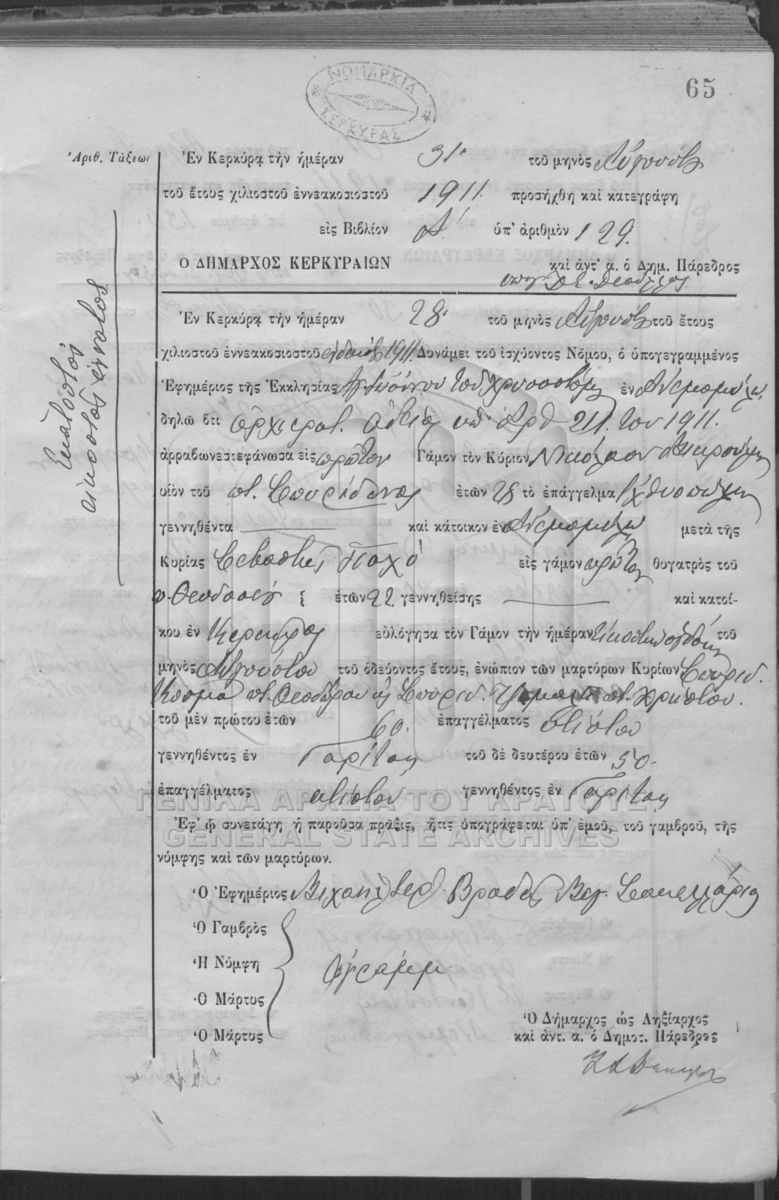 65
ΝΟΜΑΡΧΙΑ
ΚΕΡΚΥΡΑΣ
Ἀριθ. Τάξεως
Ἑκατοστὸς
εἰκοστὸς ἔννατος
Ἐν Κερκύρᾳ τὴν ἡμέραν 31. τοῦ μηνὸς Αὐγούστου
τοῦ ἔτους χιλιοστοῦ ἐννεακοσιοστοῦ 1911. προσήχθη καὶ κατεγράφη
εἰς Βιβλίον Α' ὑπ' ἀριθμὸν 129.
Ὁ ΔΗΜΑΡΧΟΣ ΚΕΡΚΥΡΑΙΩΝ καὶ ἀντ' α. ὁ Δημ. Πάρεδρος
Ἐν Κερκύρᾳ τὴν ἡμέραν 28. τοῦ μηνὸς Αὐγούστου τοῦ ἔτους
χιλιοστοῦ ἐννεακοσιοστοῦ 1911. Δυνάμει τοῦ ἰσχύοντος Νόμου, ὁ ὑπογεγραμμένος
Ἐφημέριος τῆς Ἐκκλησίας Ἁγ. Ἰωάννου τοῦ Χρυσοστόμου ἐν Ἀνεμομύλῳ
δηλῶ ὅτι ἀρχιερατ. ἀδείᾳ ὑπ' ἀριθ 211. του 1911.
ἀρραβωνεστεφάνωσα εἰς πρῶτον Γάμον τὸν Κύριον Νικόλαον
υἱὸν τοῦ π. Σπυρίδωνος ἐτῶν 28 τὸ ἐπάγγελμα ἰχθυοπώλην
γεννηθέντα — καὶ κάτοικον ἐν Ἀνεμομύλῳ μετὰ τῆς
Κυρίας Σεβαστῆς εἰς γάμον πρῶτον θυγατρὸς τοῦ
π. Θεοδοσίου ἐτῶν 22 γεννηθείσης — καὶ κατοί-
κου ἐν Κερκύρας εὐλόγησα τὸν Γάμον τὴν ἡμέραν εἰκοστὴν ὀγδόην τοῦ
μηνὸς Αὐγούστου τοῦ ὁδεύοντος ἔτους, ἐνώπιον τῶν μαρτύρων Κυρίων Σπυρίδ.
Κοσμᾶ π. Θεοδώρου κ Σπυρίδ. π. Χρήστου.
τοῦ μὲν πρώτου ἐτῶν 60. ἐπαγγέλματος κτίστου
γεννηθέντος ἐν Γαρίτσας τοῦ δὲ δευτέρου ἐτῶν 50.
ἐπαγγέλματος κτίστου γεννηθέντος ἐν Γαρίτσας
ΓΕΝΙΚΑ ΑΡΧΕΙΑ ΤΟΥ ΚΡΑΤΟΥΣ
Ἐφ' ᾧ συνετάγη ἡ παροῦσα πρᾶξις, ἥτις ὑπογράφεται ὑπ' ἐμοῦ, τοῦ γαμβροῦ, τῆς
GENERAL STATE ARCHIVES
νύμφης καὶ τῶν μαρτύρων.
Ὁ Ἐφημέριος Μιχαὴλ Ἱερ. Βραδῆς
Ὁ Γαμβρὸς
Ἡ Νύμφη ἀγράμμ.
Ὁ Μάρτυς
Ὁ Μάρτυς
Ὁ Δήμαρχος ὡς Ληξίαρχος
καὶ ἀντ. α. ὁ Δημοτ. Πάρεδρος